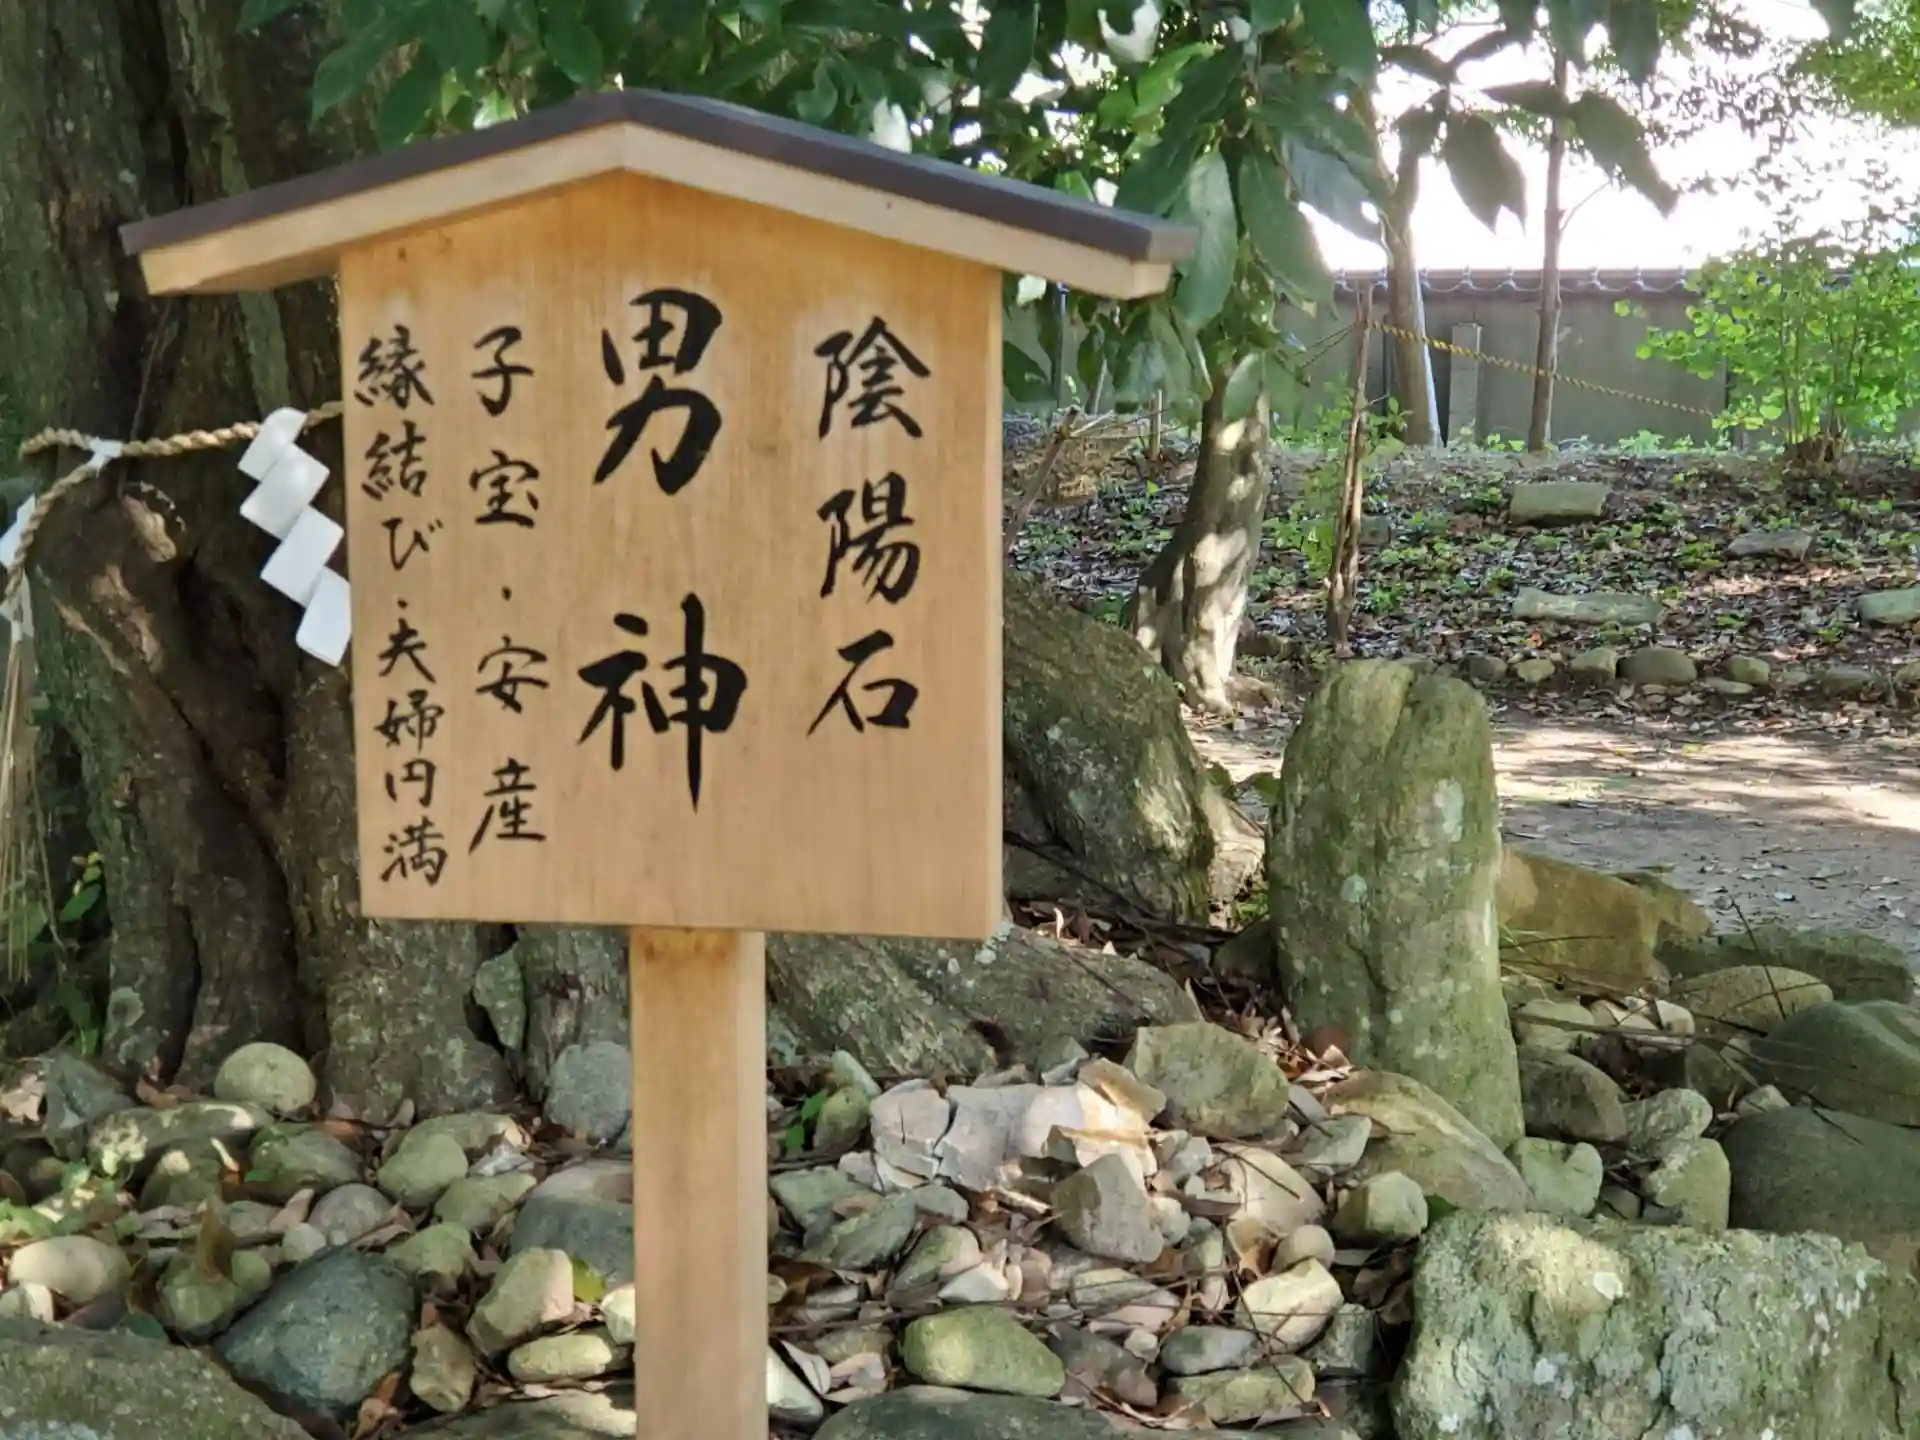 陰陽石
男神
子宝・安産
縁結び・夫婦円満